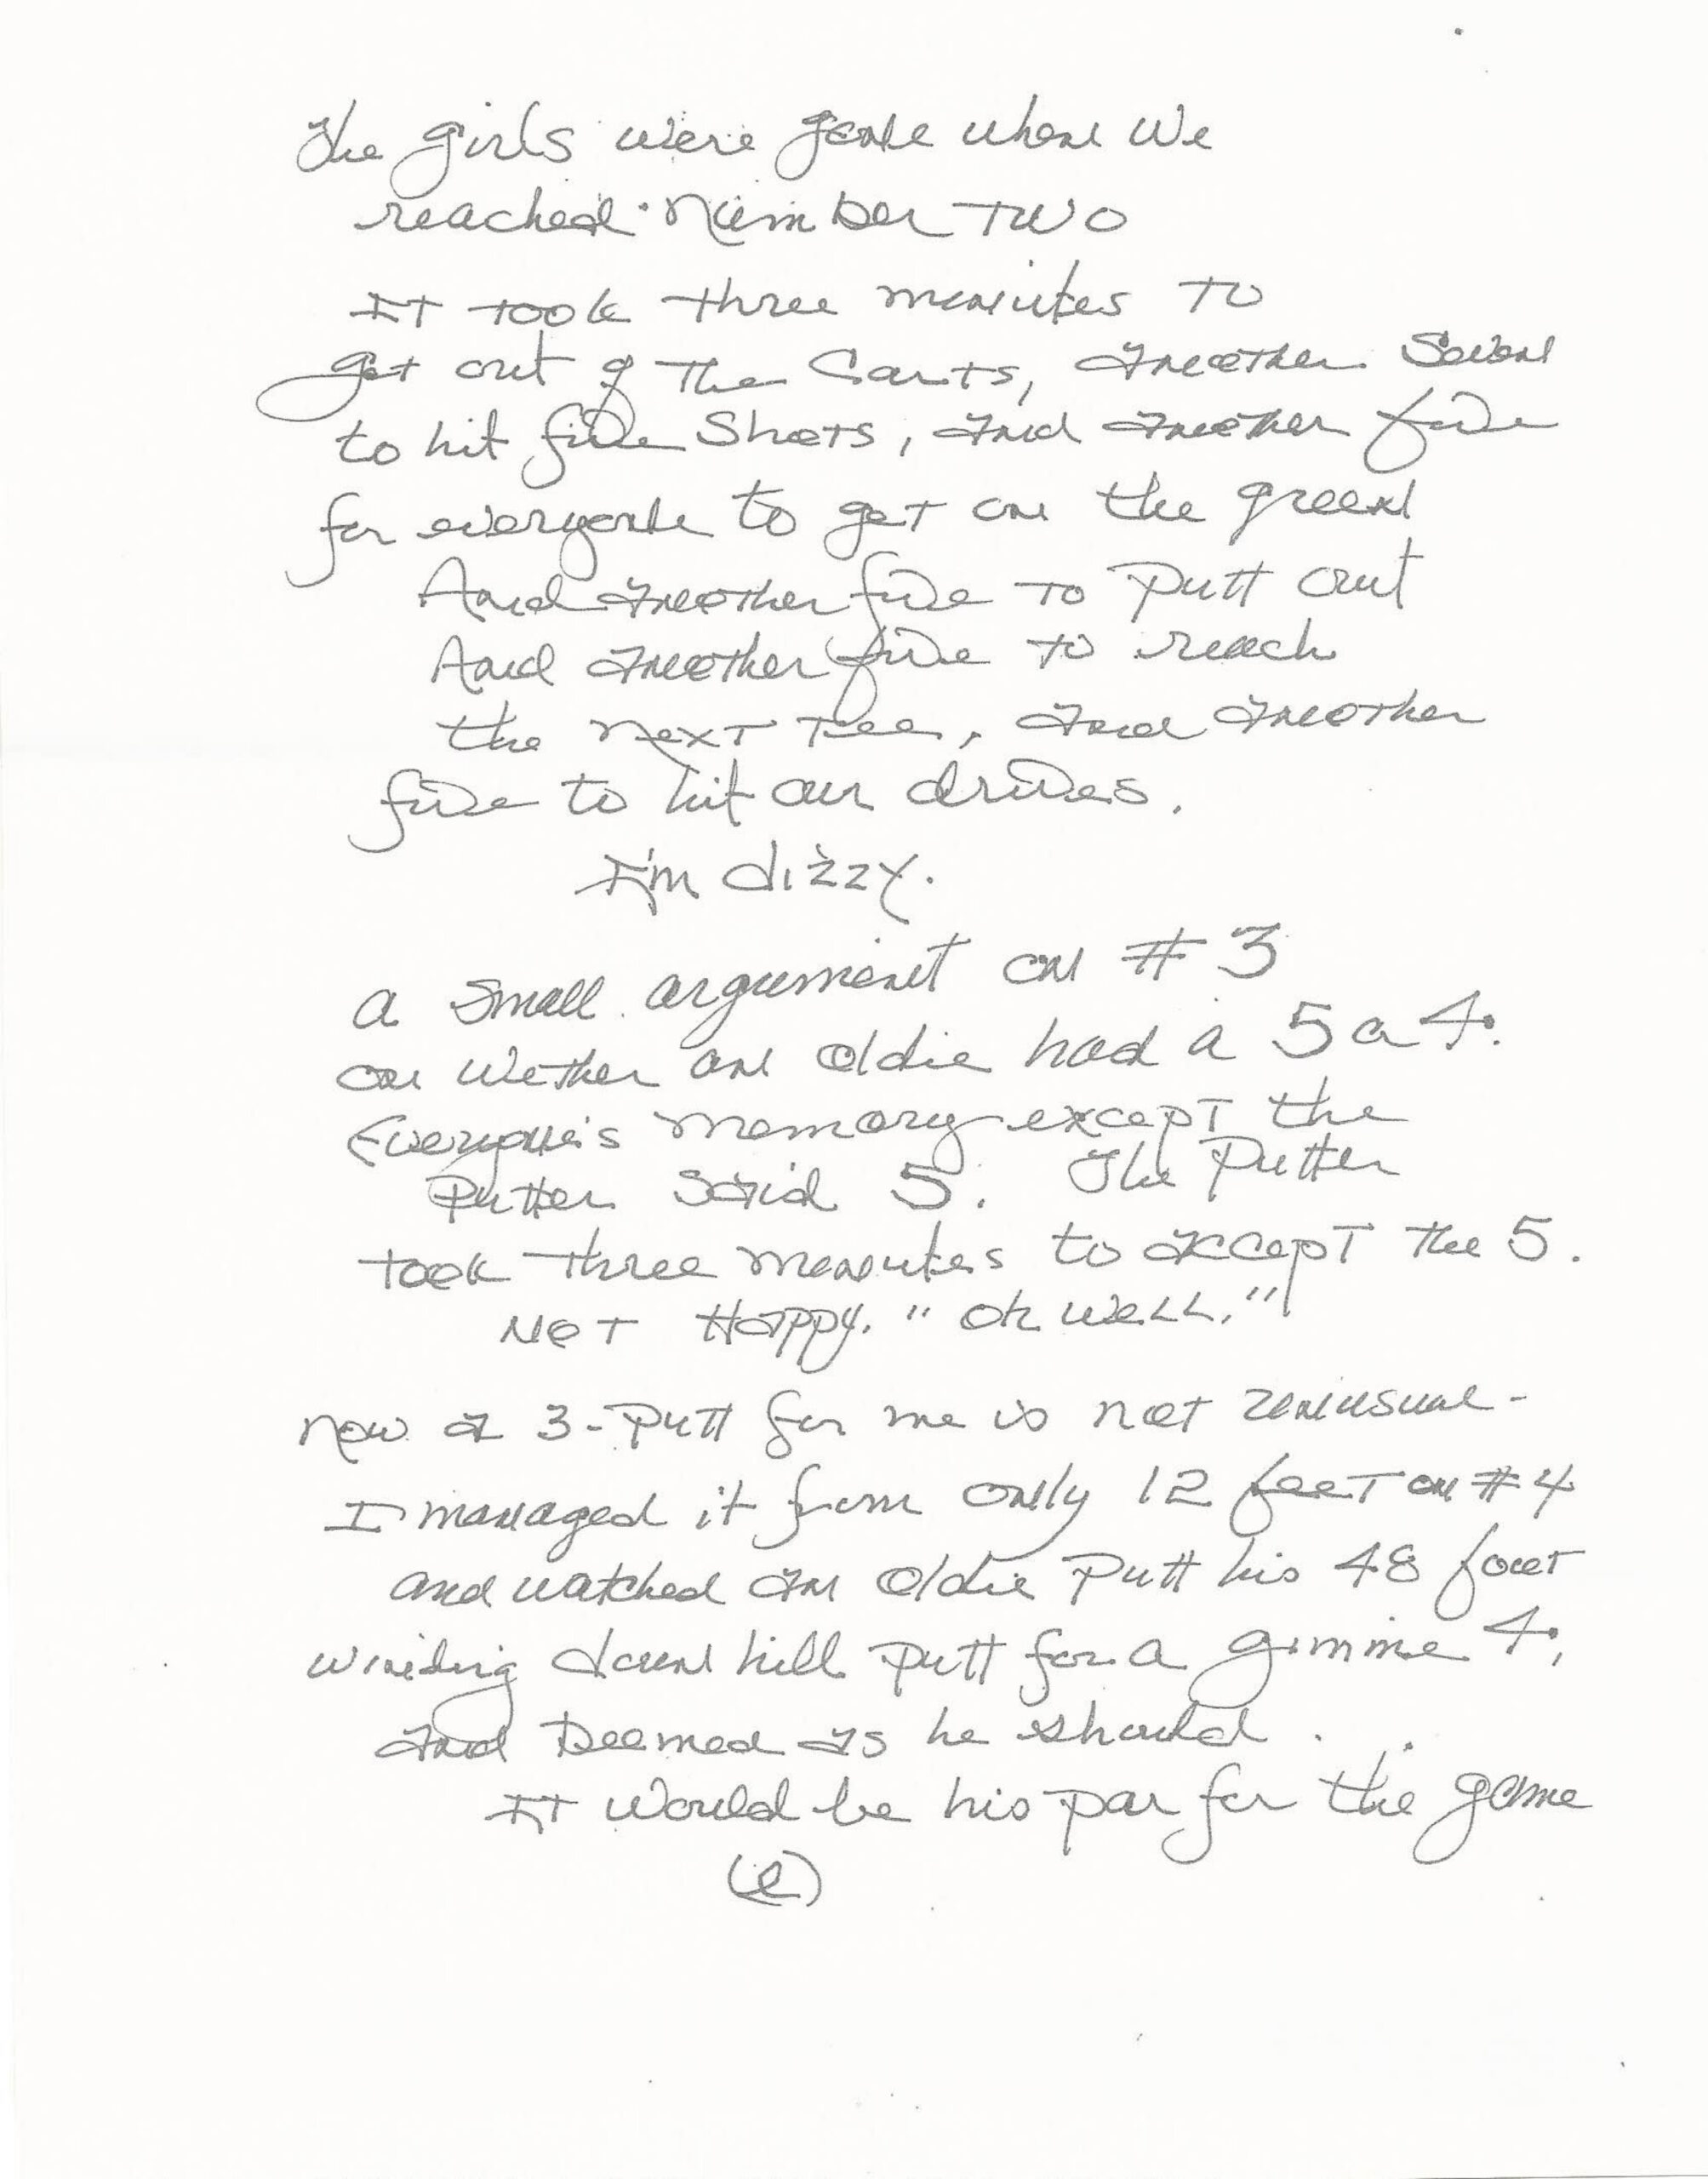 The girls were gone when we
reached number TWO
IT TOOK three minutes TO
get out of The Carts, Another Seven
to hit five Shots, And Another five
for everyone to get on the green
And Another five TO Putt out
And Another five to reach
the next Tee, And Another
five to hit our drives.
I'm dizzy.
a Small argument on # 3
on Wether an oldie had a 5 or 4.
Everyone's memory except the
Putter Said 5. The Putter
took three minutes to Accept the 5.
NOT HAPPY. "Oh WELL."
now A 3-Putt for me is not unusual -
I managed it from only 12 feet on #4
and watched An oldie Putt his 48 foot
winding down hill putt for a gimme 4,
And beemed As he should.
IT would be his par for the game